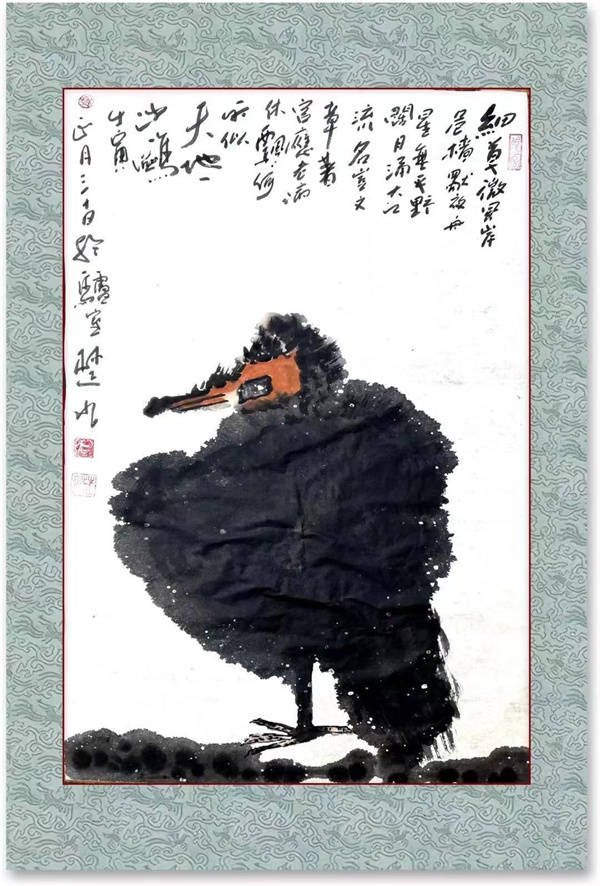 細草微風岸
危檣獨夜舟
星垂平野
闊月涌大江
流名豈文
章著
官應老病
休飄飄何
所似
天地一
沙鷗
壬寅
正月三十日於
室楚水